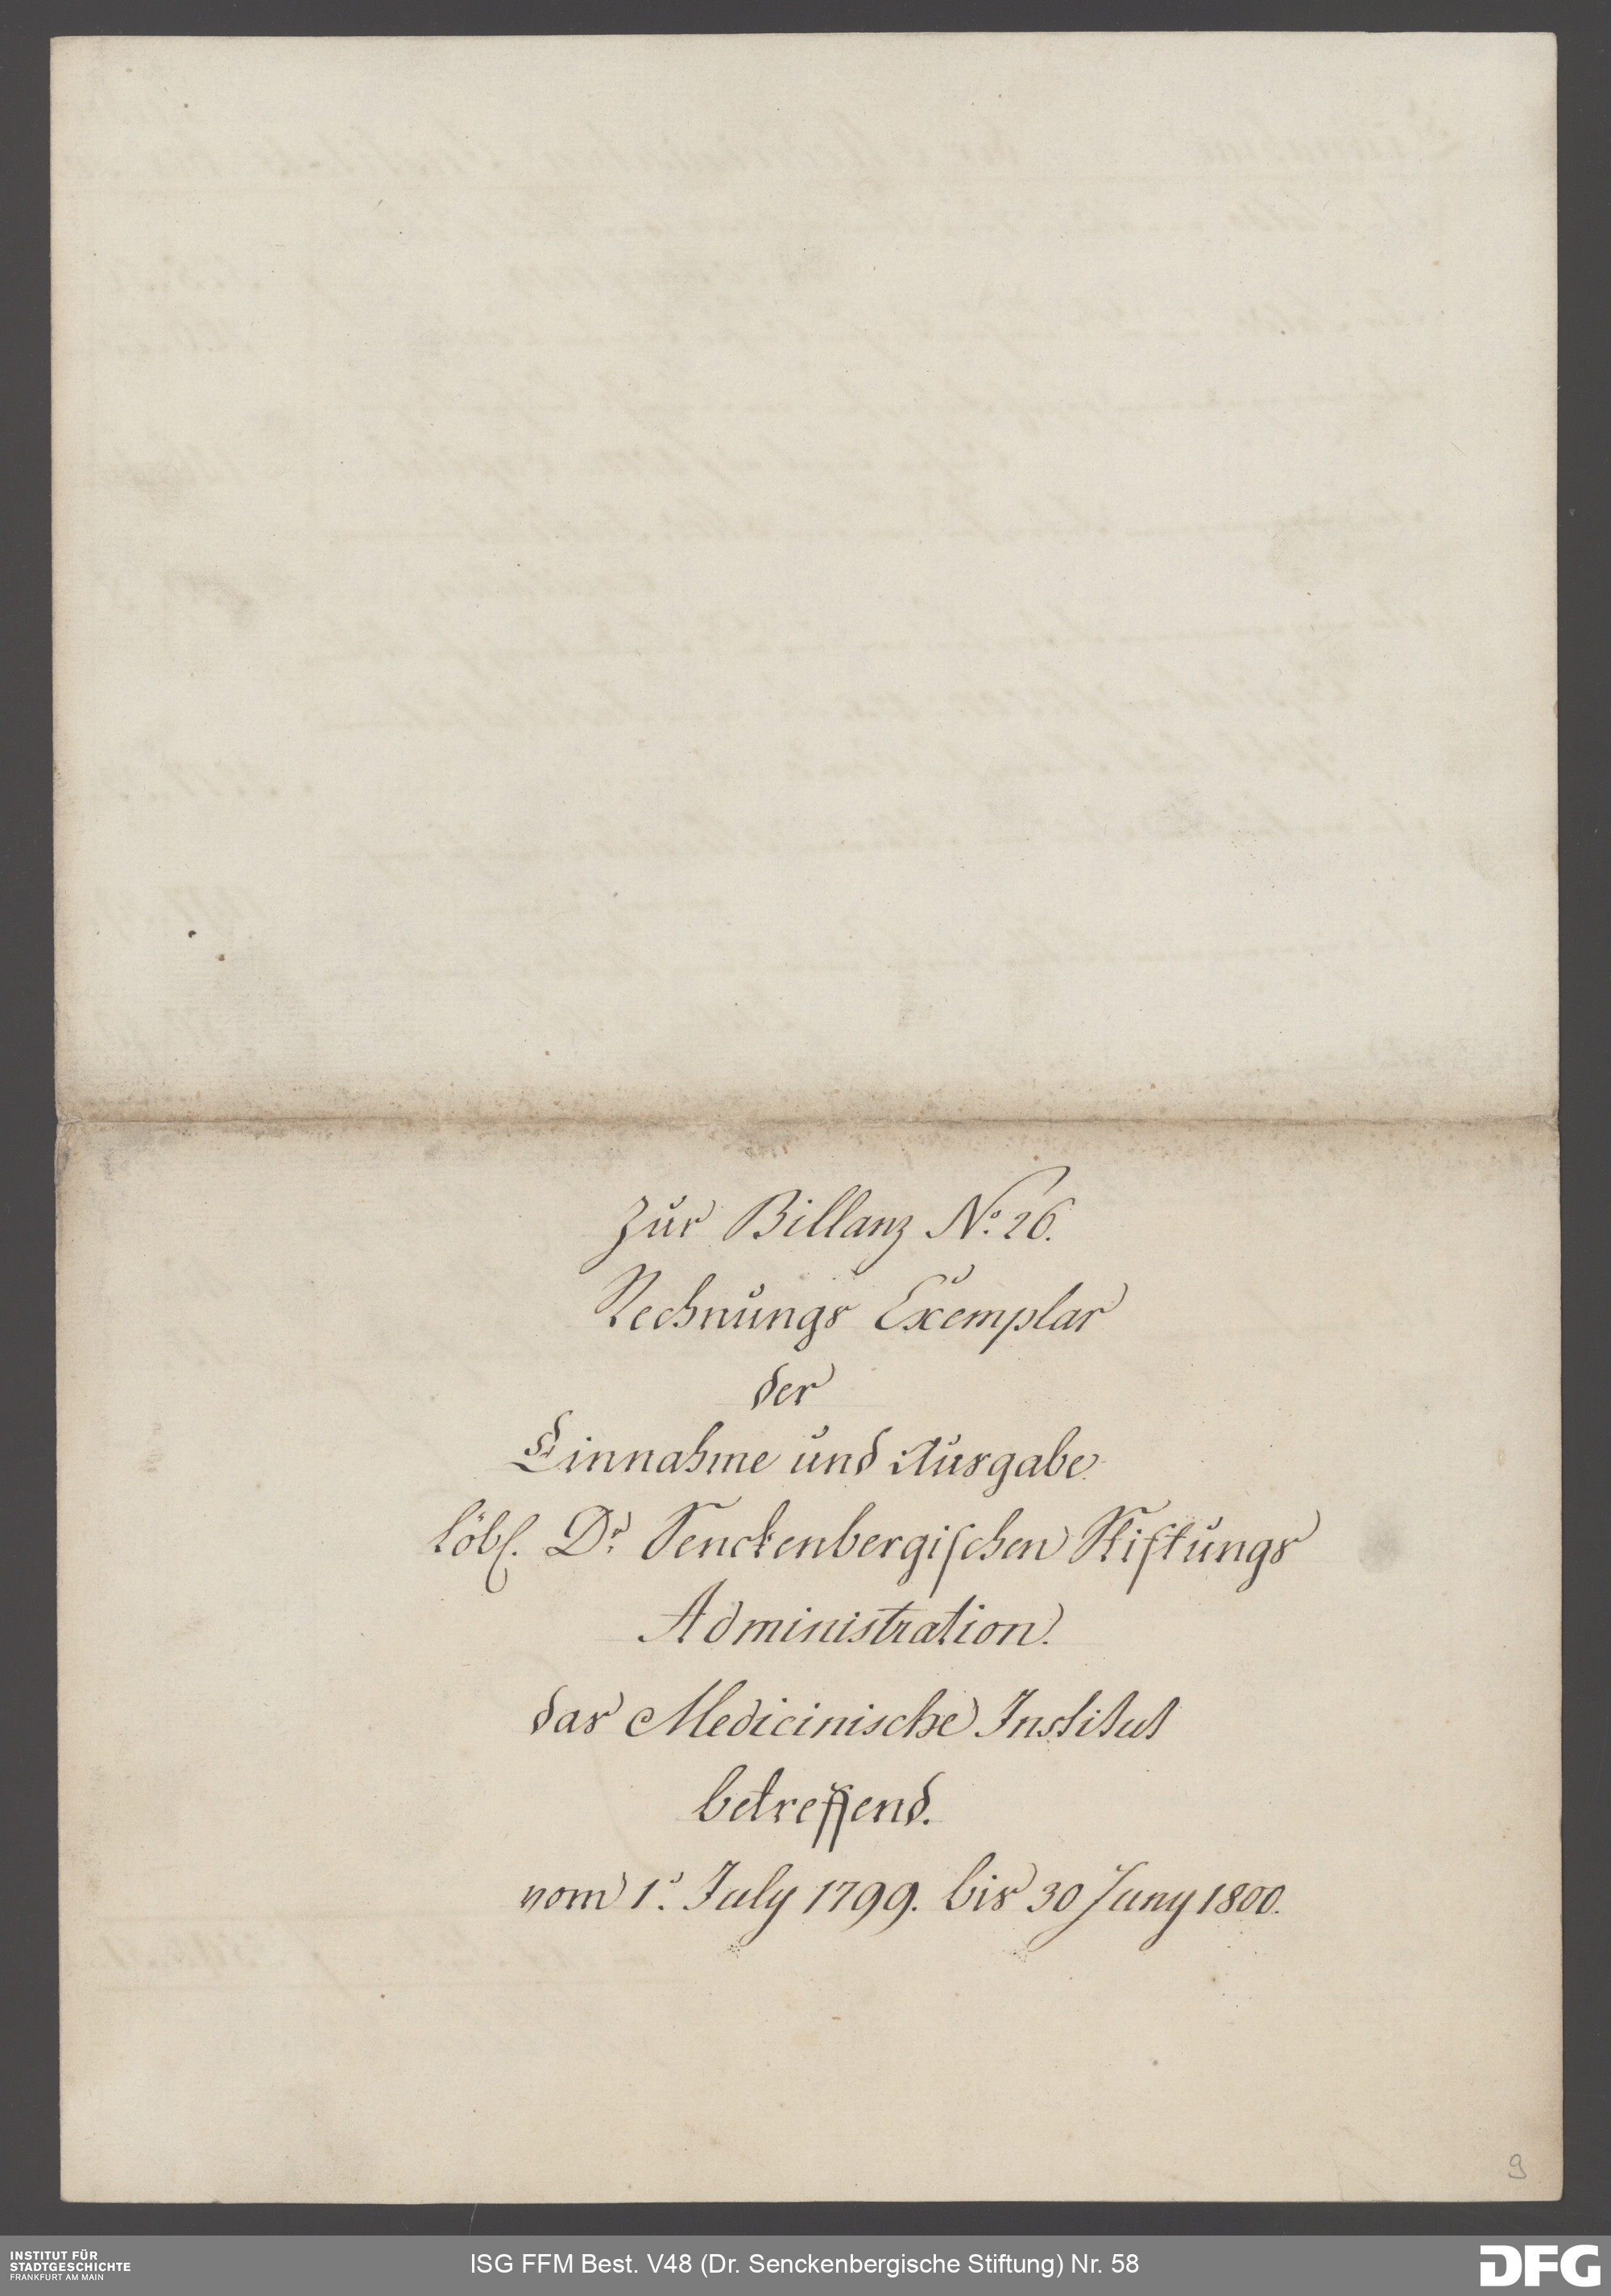 Zur Billanz No. 26.
Rechnungs Exemplar
der
Einnahme und Ausgabe
löbl. Dr. Senckenbergischen Stiftungs
Administration.
das Medicinische Institut
betreffend.
vom 1. July 1799. bis 30 Juny 1800.
9
INSTITUT FÜR
STADTGESCHICHTE
FRANKFURT AM MAIN
ISG FFM Best. V48 (Dr. Senckenbergische Stiftung) Nr. 58
DFG